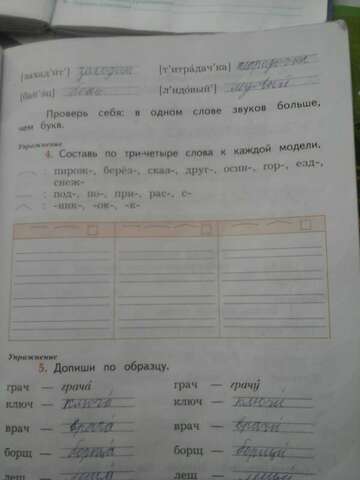 [заход'ит'] заходит [т'итрадач'ка] тетрадочка
[л'идовый'] ледовый
Проверь себя: в одном слове звуков больше,
чем букв.
Упражнение
4. Составь по три-четыре слова к каждой модели.
: пирож-, берёз-, скал-, друг-, осин-, гор-, езд-,
снеж-
: под-, по-, при-, рас-, с-
: -ник-, -ок-, -к-
Упражнение
5. Допиши по образцу.
грач — грача́ грач — грачи́
ключ — ключа́ ключ — ключи́
врач — врача́ врач — врачи́
борщ — борща́ борщ — борщи́
лещ — леща́ лещ — лещи́